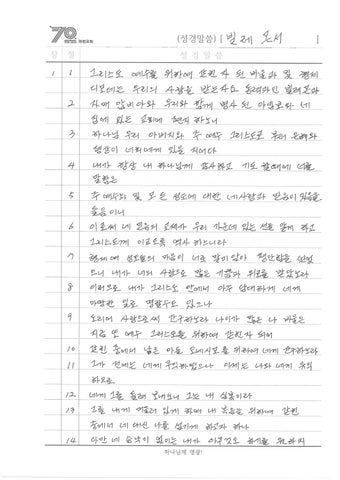 70
(성경말씀) | 빌레몬서 |
장 절 성경말씀
1 1 그리스도 예수를 위하여 갇힌 자 된 바울과 및 형제
디모데는 우리의 사랑을 받는 자요 동역자인 빌레몬과
2 자매 압비아와 우리와 함께 병사 된 아킵보와 네
집에 있는 교회에 편지하노니
3 하나님 우리 아버지와 주 예수 그리스도로부터 은혜와
평강이 너희에게 있을지어다
4 내가 항상 내 하나님께 감사하고 기도할 때에 너를
말함은
5 주 예수와 및 모든 성도에 대한 네 사랑과 믿음이 있음을
들음이니
6 이로써 네 믿음의 교제가 우리 가운데 있는 선을 알게 하고
그리스도께 이르도록 역사하느니라
7 형제여 성도들의 마음이 너로 말미암아 평안함을 얻었
으니 내가 너의 사랑으로 많은 기쁨과 위로를 받았노라
8 이러므로 내가 그리스도 안에서 아주 담대하게 네게
마땅한 일로 명할 수도 있으나
9 도리어 사랑으로써 간구하노라 나이가 많은 나 바울은
지금 또 예수 그리스도를 위하여 갇힌 자 되어
10 갇힌 중에서 낳은 아들 오네시모를 위하여 네게 간구하노라
11 그가 전에는 네게 무익하였으나 이제는 나와 네게 유익
하므로
12 네게 그를 돌려 보내노니 그는 내 심복이라
13 그를 내게 머물러 있게 하여 내 복음을 위하여 갇힌
중에서 네 대신 나를 섬기게 하고자 하나
14 다만 네 승낙이 없이는 내가 아무것도 하기를 원하지
하나님께 영광!